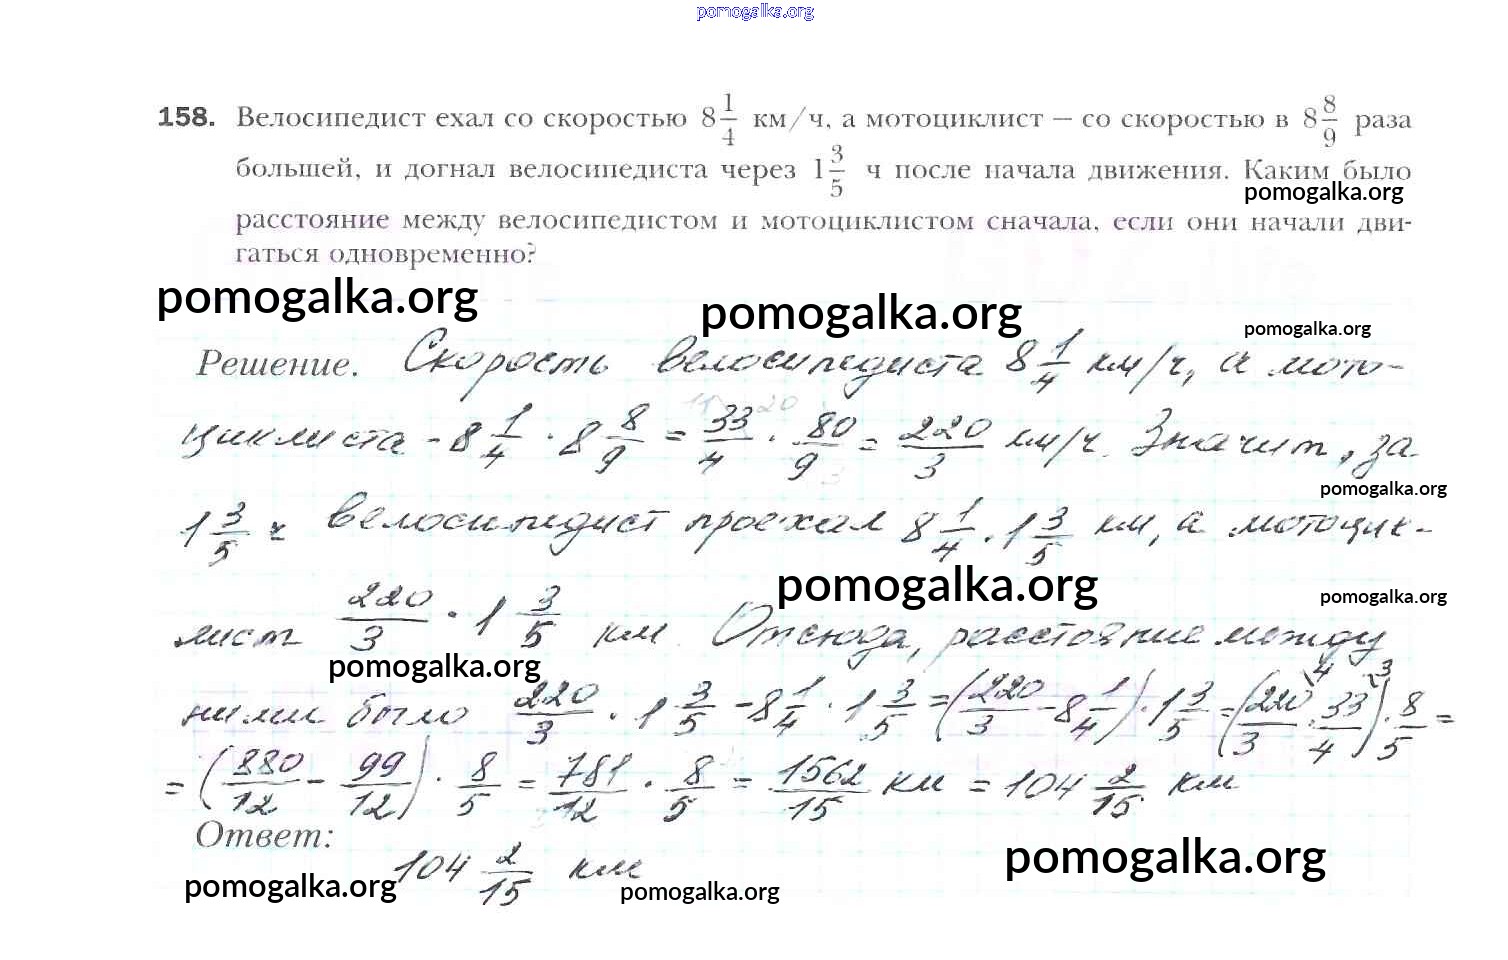 pomogalka.org
158. Велосипедист ехал со скоростью 8 1/4 км/ч, а мотоциклист – со скоростью в 8 8/9 раза
большей, и догнал велосипедиста через 1 3/5 ч после начала движения. Каким было
pomogalka.org
расстояние между велосипедистом и мотоциклистом сначала, если они начали дви-
гаться одновременно?
pomogalka.org
pomogalka.org
pomogalka.org
Решение. Скорость велосипедиста 8 1/4 км/ч, а мото-
циклиста - 8 1/4 · 8 8/9 = 33/4 · 80/9 = 220/3 км/ч. Значит, за
pomogalka.org
1 3/5 ч велосипедист проехал 8 1/4 · 1 3/5 км, а мотоцик-
pomogalka.org
pomogalka.org
лист 220/3 · 1 3/5 км. Отсюда, расстояние между
pomogalka.org
ними было 220/3 · 1 3/5 - 8 1/4 · 1 3/5 = (220/3 - 8 1/4) · 1 3/5 = (220/3 \4 · 33/4 \3) · 8/5 =
= (880/12 - 99/12) · 8/5 = 781/12 · 8/5 = 1562/15 км = 104 2/15 км
Ответ:
104 2/15 км
pomogalka.org
pomogalka.org
pomogalka.org